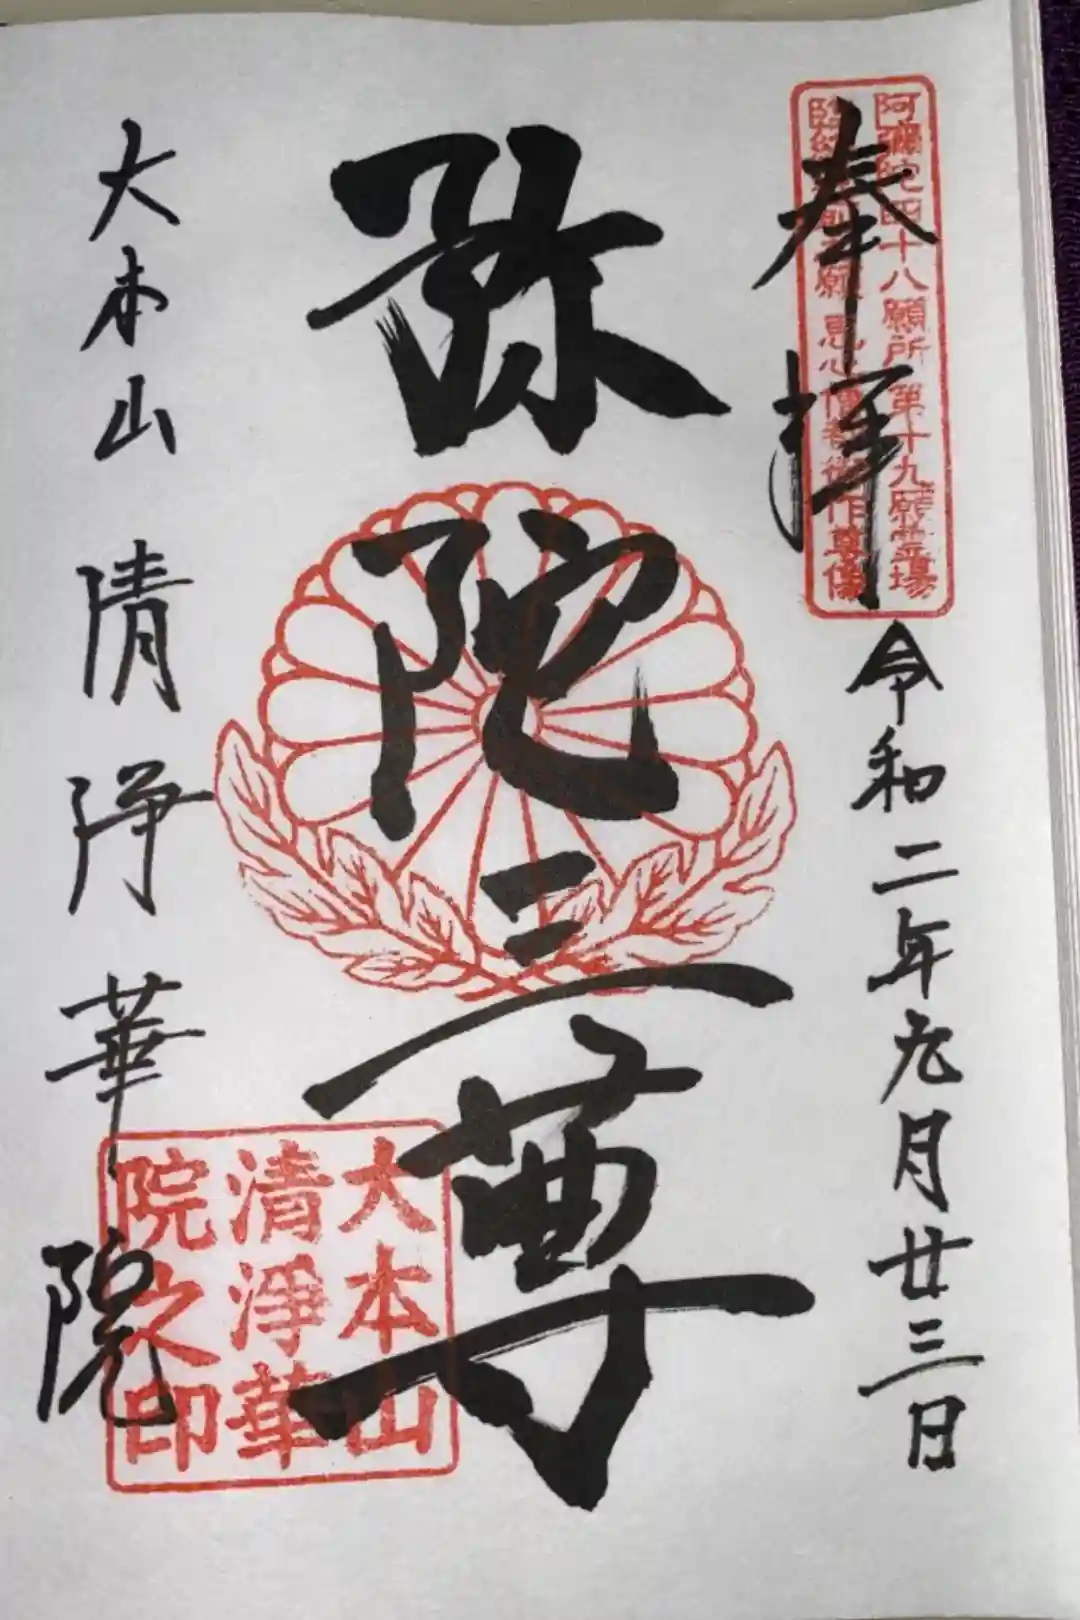 阿彌陀四十八願所第十九願霊場
願恵心僧都御作尊像
奉拝
令和二年九月廿三日
弥陀三尊
大本山
清浄華
院之印
大本山清浄華院